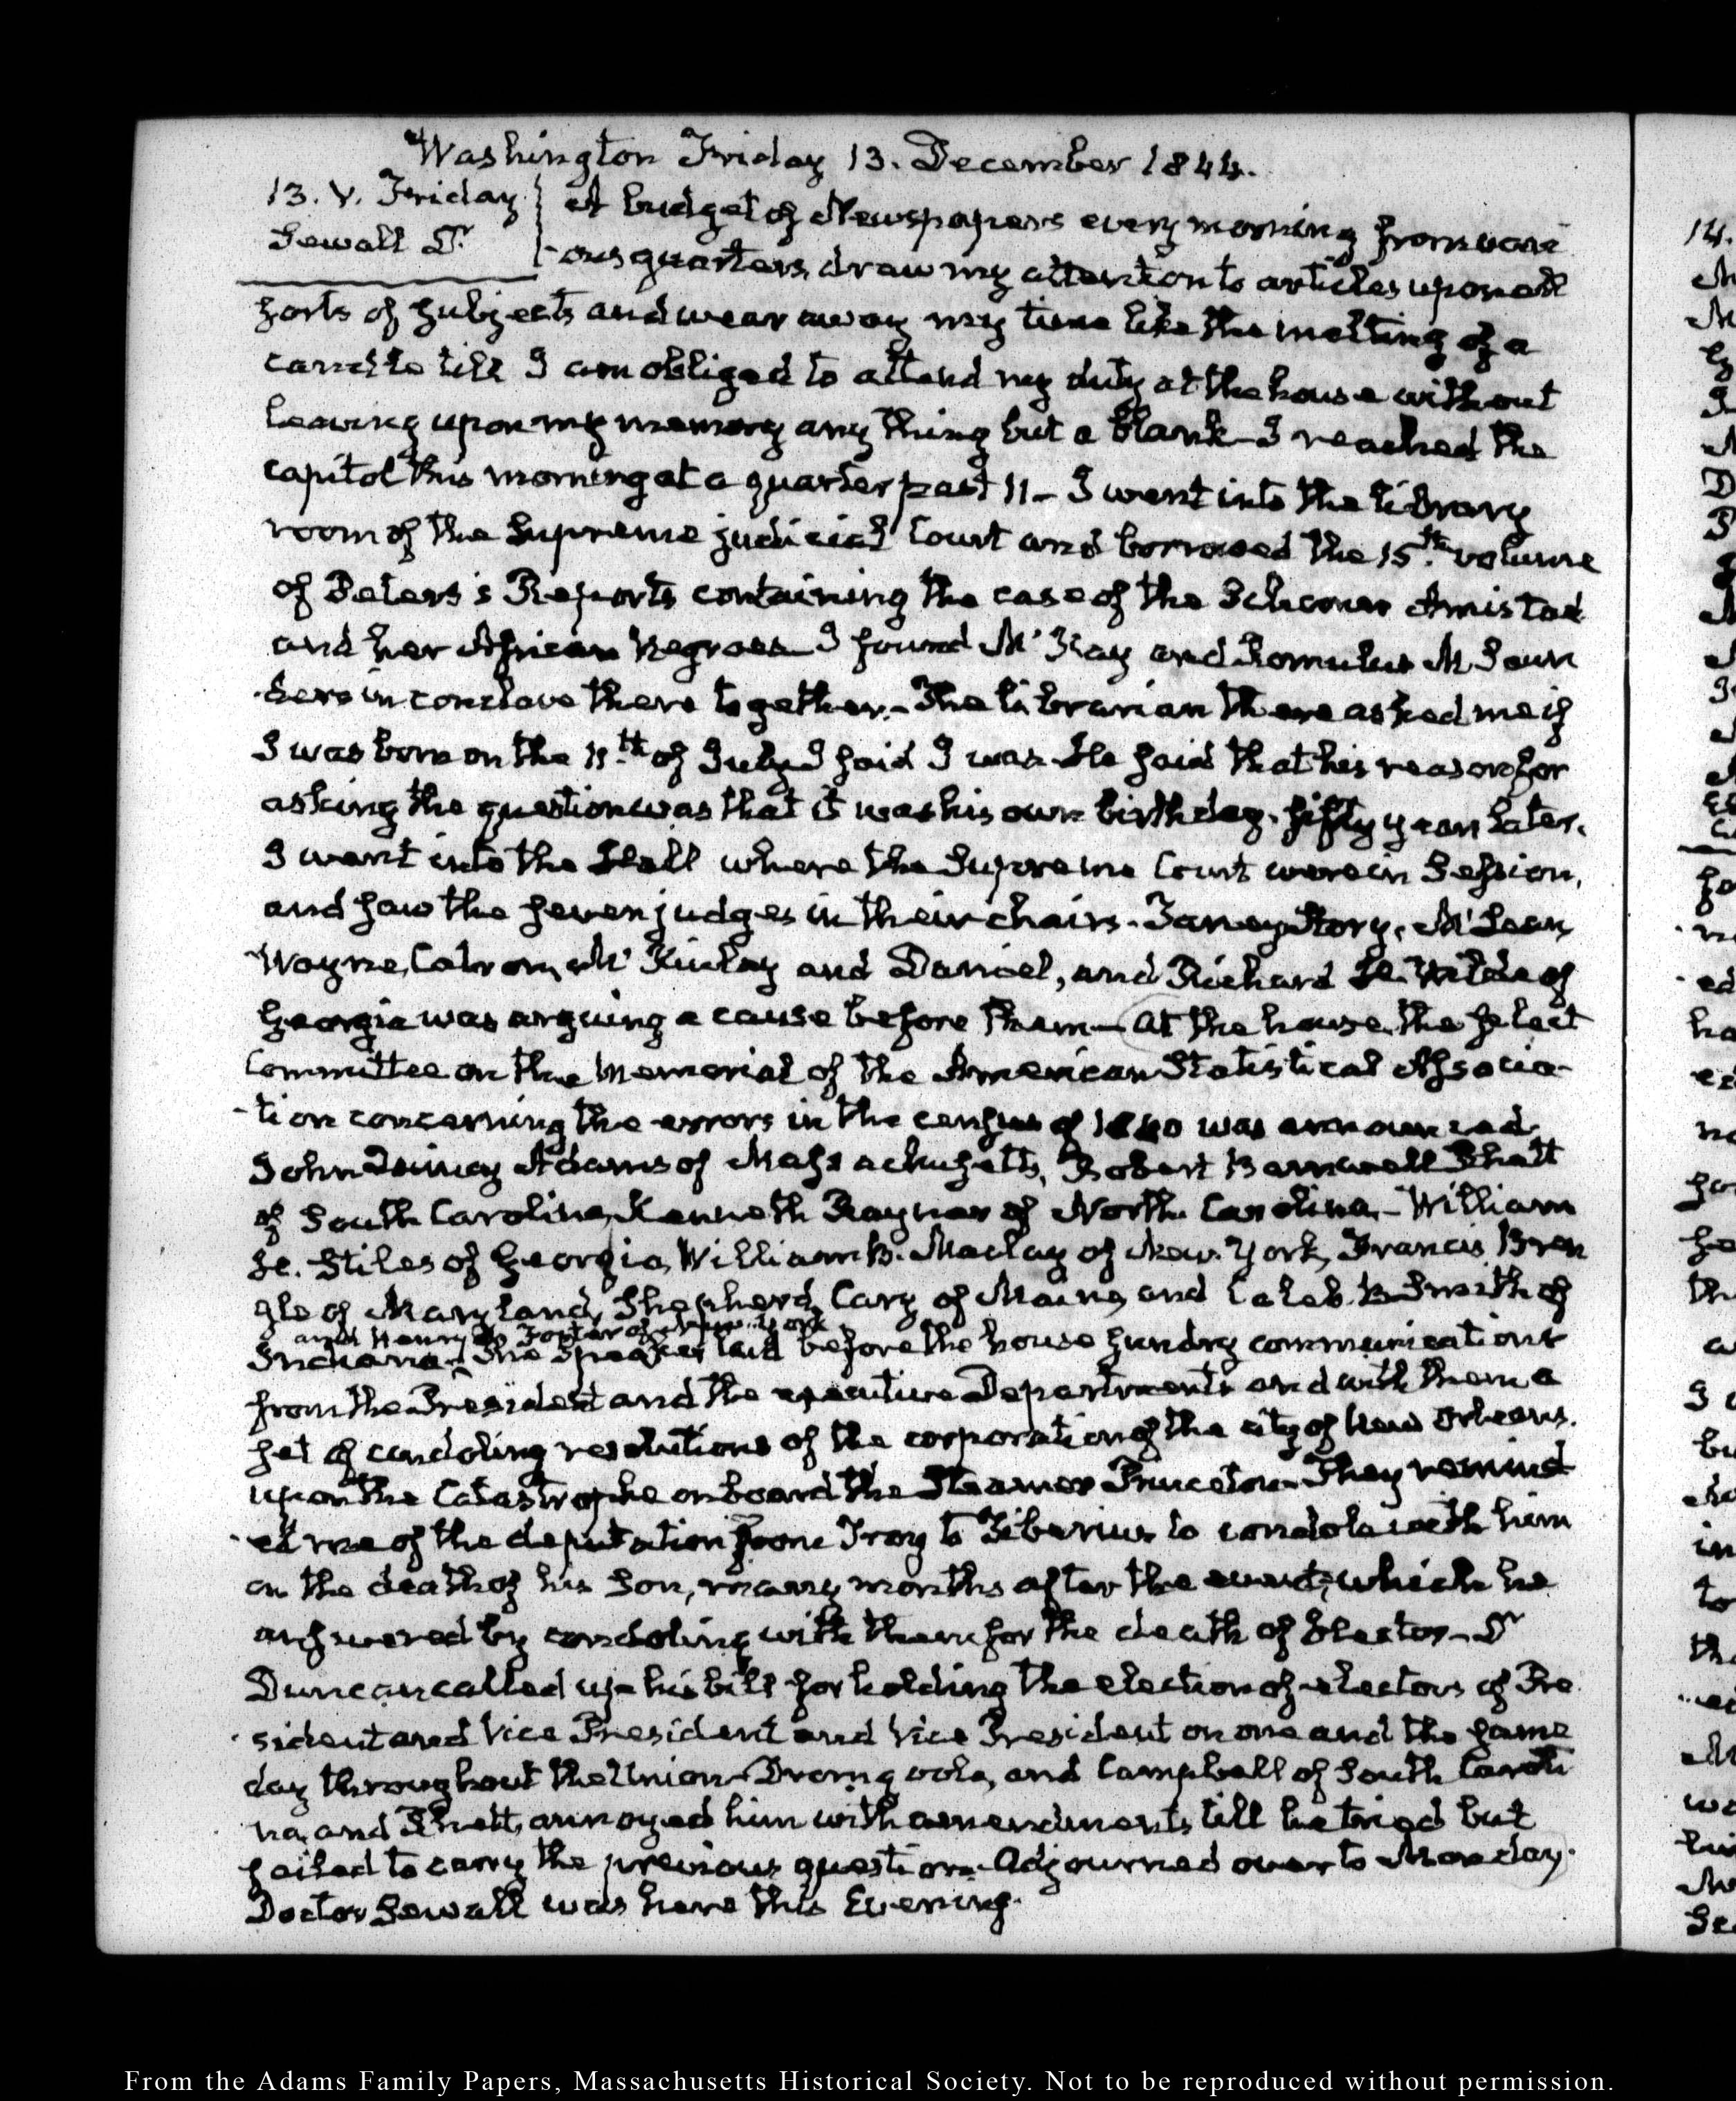 Washington Friday 13. December 1844.
13. V. Friday
Sewall Dr.
A budget of Newspapers every morning from vari
-ous quarters, draw my attention to articles upon all
sorts of subjects and wear away my time like the melting of a
candle till I am obliged to attend my duty at the house without
leaving upon my memory any thing but a blank— I reached the
capitol this morning at a quarter past 11— I went into the library
room of the Supreme judicial Court and borrowed the 15th. volume
of Peters's Reports containing the case of the Schooner Amistad
and her African Negroes— I found Mc.Kay and Romulus M Saun
-ders in conclave there together.— The librarian there asked me if
I was born on the 11th. of July I said I was. He said that his reason for
asking the question was that it was his own birthday. fifty years later.
I went into the Hall where the Supreme Court were in Session,
and saw the seven judges in their chairs. Taney, Story, McLean,
Wayne, Catron, McKinley and Daniel, and Richard H. Wilde of
Georgia was arguing a cause before them— At the house, the select
Committee on the memorial of the American Statistical Associa-
-tion concerning the errors in the census of 1840 was announced
John Quincy Adams of Massachusetts, Robert Barnwell Rhett
of South Carolina, Kenneth Rayner of North Carolina,— William
H. Stiles of Georgia, William B. Maclay of New York, Francis Bren
gle of Maryland, Shepherd Cary of Maine, and Caleb B Smith of
and Henry D. Foster of New-York
Indiana— The Speaker laid before the house sundry communications
from the President and the executive Departments and with them a
set of condoling resolutions of the corporation of the city of New Orleans.
upon the Catastrophe on board the Steamer Princeton— They remind
-ed me of the deputation from Troy to Tiberius to condole with him
on the death of his Son, many months after the event, which he
answered by condoling with them for the death of Hector— Dr
Duncan called up his bill for holding the election of electors of Pre
-sident and Vice President and Vice President on one and the same
day throughout the Union— Dromgoole, and Campbell of South Caroli
na, and Rhett, annoyed him with amendments till he tried but
failed to carry the previous question— Adjourned over to Monday.
Doctor Sewall was here this Evening.
From the Adams Family Papers, Massachusetts Historical Society. Not to be reproduced without permission.